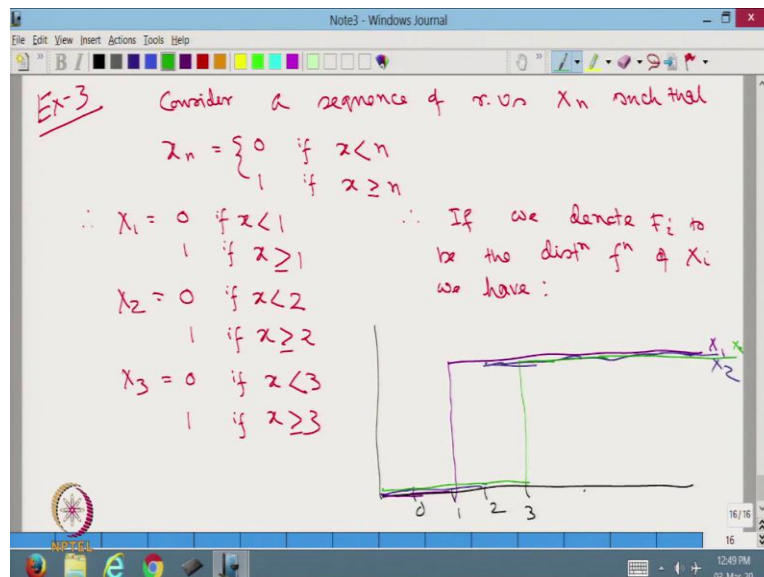 Note3 - Windows Journal
File Edit View Insert Actions Tools Help
B I
Ex-3 Consider a sequence of r.vs Xn such that
Xn = { 0 if x < n
1 if x ≥ n
∴ X1 = 0 if x < 1
1 if x ≥ 1
X2 = 0 if x < 2
1 if x ≥ 2
X3 = 0 if x < 3
1 if x ≥ 3
∴ If we denote Fi to
be the distⁿ fⁿ of Xi
we have :
X1
X2
0 1 2 3
NPTEL
16/16
16
12:49 PM